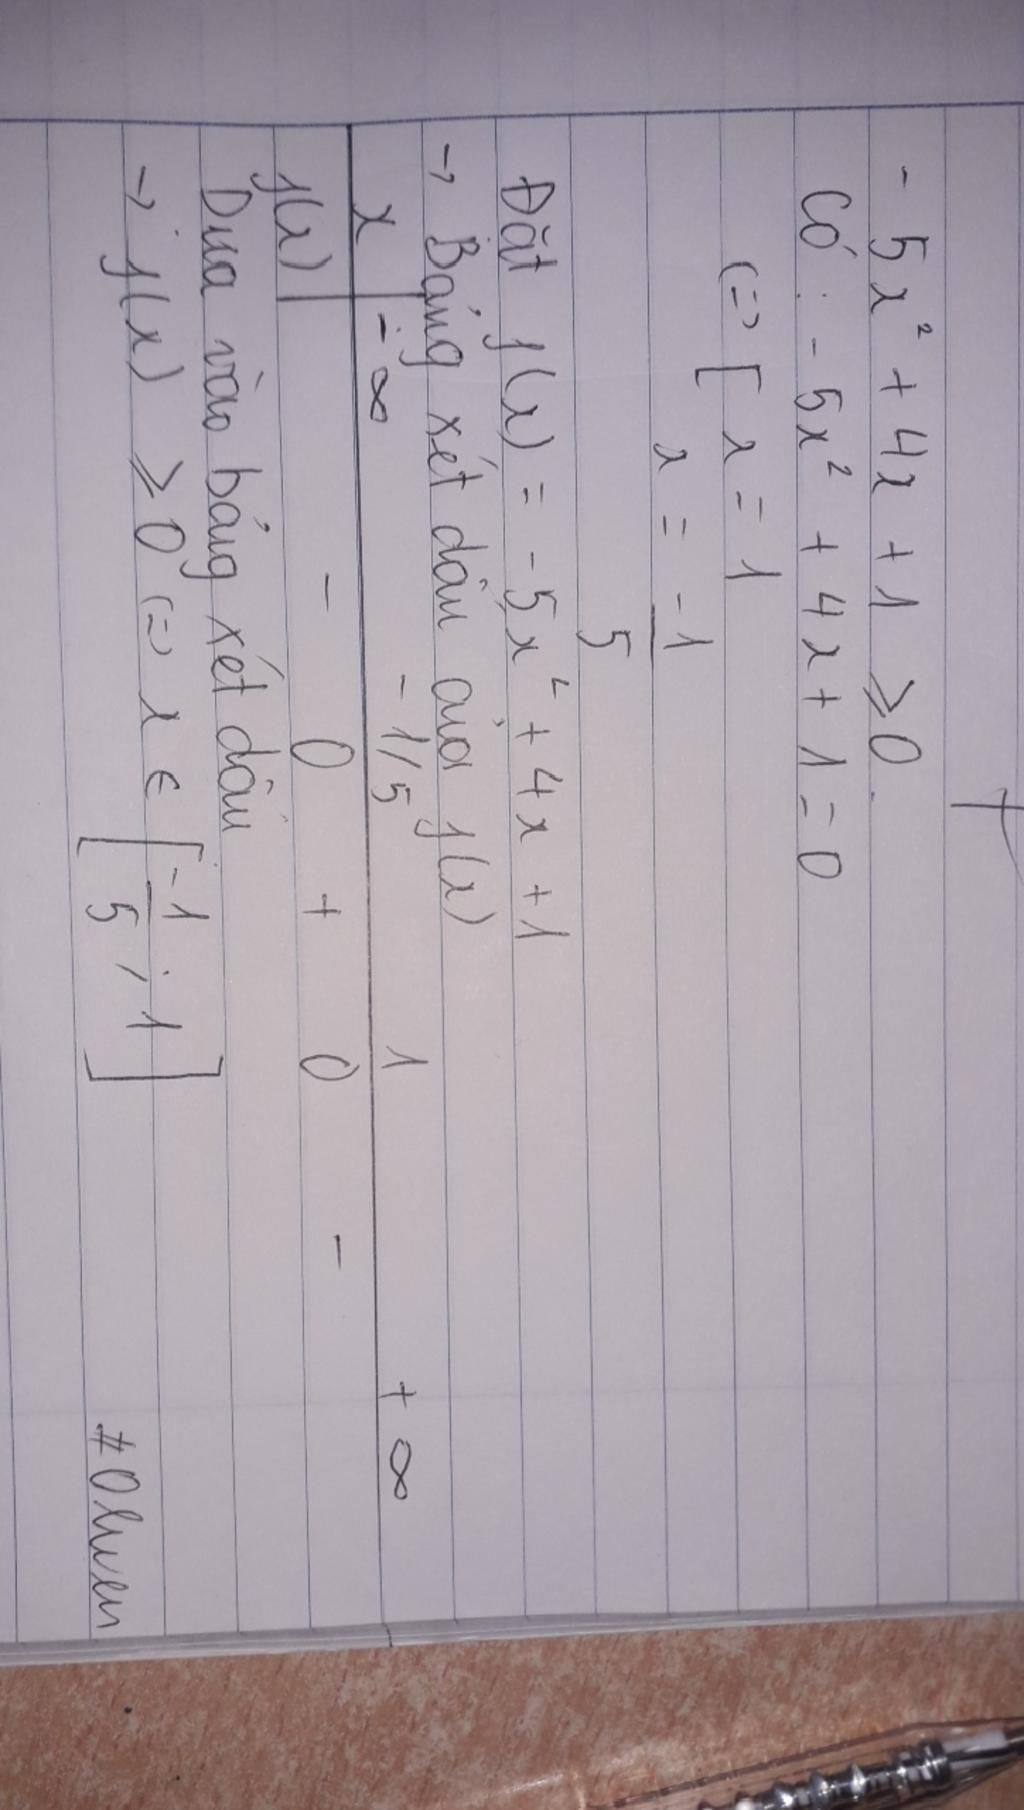 - 5x² + 4x + 1 ⩾ 0.
Có : - 5x² + 4x + 1 = 0
(=> [ x = 1
x = -1/5
Đặt f(x) = - 5x² + 4x + 1
→ Bảng xét dấu của f(x)
x | -∞ -1/5 1 +∞
f(x) | - 0 + 0 -
Dựa vào bảng xét dấu
→ f(x) ⩾ 0 (=> x ∈ [-1/5 ; 1]
#Olwen